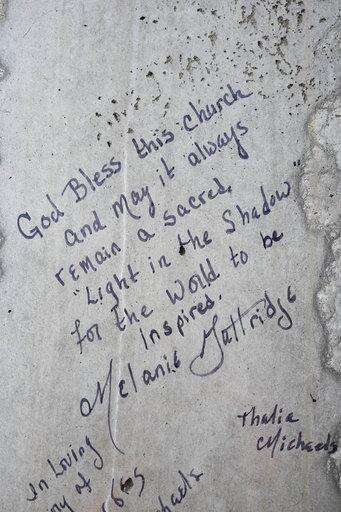 God Bless this church
and may it always
remain a sacred,
"Light in the Shadow"
for the World to be
Inspired.
Melanie Guttridge
Thalia
Michaels
in Loving
of